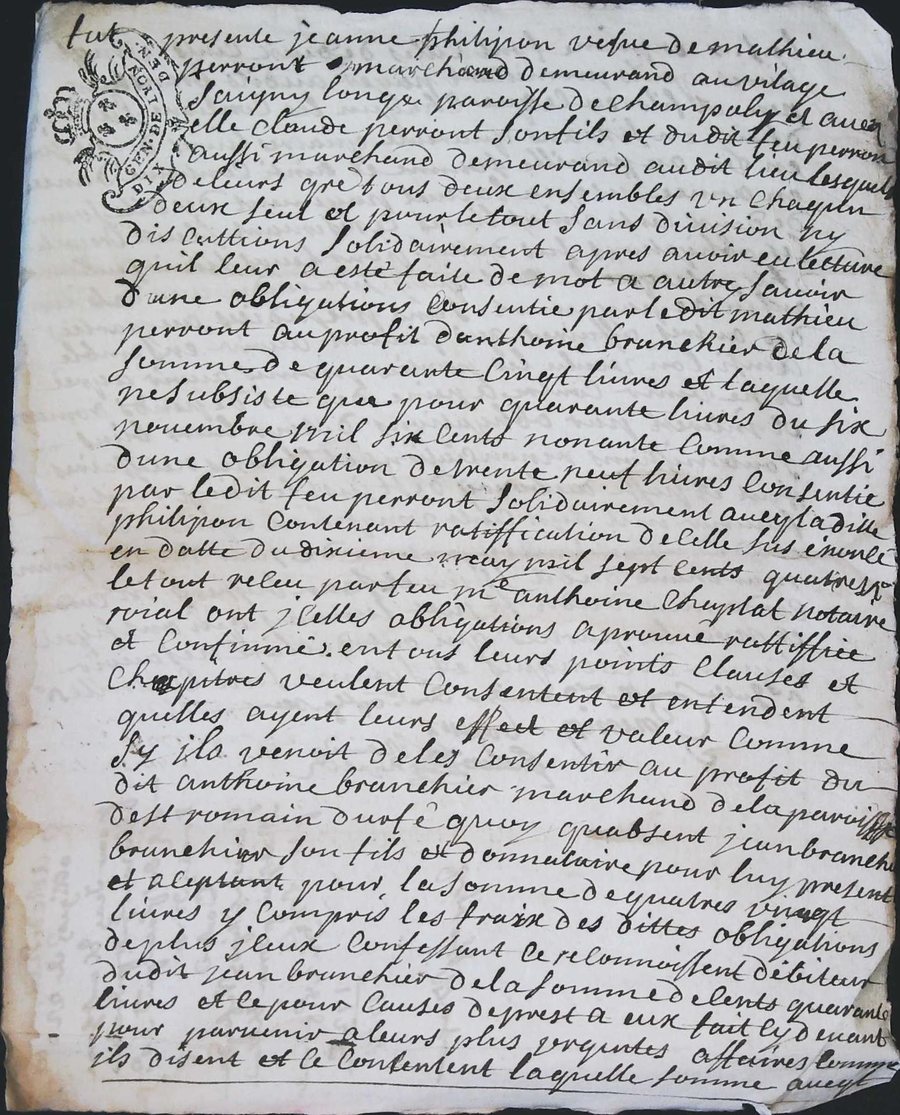 fut presente jeanne philipon vefve de mathieu
perront marchand demeurand au vilage
Saigny longe paroisse de champoly et avec
elle claude perront Son fils et dudit feu perron
aussi marchand demeurand audit lieu lesquels
de leurs gré tous deux ensembles un chaqun
deux seul et pour le tout Sans division ny
discuttions Solidairement apres avoir eu lecture
quil leur a esté faite de mot a autre Savoir
dune obligations Consentie par ledit mathieu
perront au profit danthoine brunchier de la
Somme de quarante Cinqt livres et laquelle
ne Subsiste que pour quarante livres du six
novembre mil six Cents nonante Comme aussi
dune obligation de trente neuf livres Consentie
par ledit feu perront Solidairement aveq la ditte
philipon Contenant ratiffication de celle sus enoncé
en datte du dixieme may mil sept cents quatre
le tout receu par feu me anthoine Chaplat notaire
roial ont jcelles obligations aprouvé rattiffiée
et Confirmé en tous leurs points Clauses et
Chapitres veulent Consentent et entendent
quelles ayent leurs effect et valeur Comme
Sy jls venoit de les Consentir au profit du
dit anthoine brunchier marchand de la paroisse
de st romain durfé quoy quabsent jean brunchier
brunchier Son fils et donnataire pour luy present
et aceptant pour la Somme de quatres vingt
livres y Compris les fraix des dittes obligations
de plus jceux Confessant ce reconnoissent débiteur
dudit jean brunchier de la Somme de Cents quarante
livres et ce pour Causes de prest a eux fait cy devant
pour parvenir a leurs plus urgentes affaires Comme
ils disent et ce Contentent laquelle Somme aveq
GEN DE
NORT
DEN
DIX